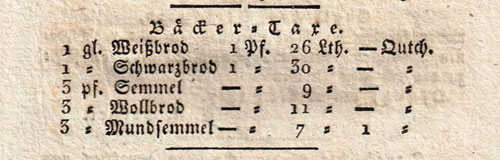 Bäcker=Taxe.
1 gl. Weißbrod 1 Pf. 26 Lth. — Qutch.
1 = Schwarzbrod 1 = 30 = — =
3 pf. Semmel — = 9 = — =
3 = Wollbrod — = 11 = — =
3 = Mundsemmel — = 7 = 1 =